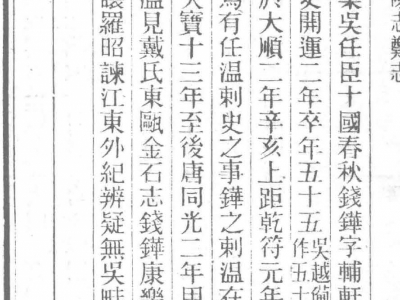 陳志鄭志
案吳任臣十國春秋錢鏵字輔軒
史開運二年卒年五十五吳越備
作五十
於大順二年辛亥上距乾符元年
焉有任溫剌史之事鏵之剌溫在
天寶十三年至後唐同光二年因
溫見戴氏東甌金石志錢鏵康樂
巖羅昭諫江東外紀辨疑無吳畦